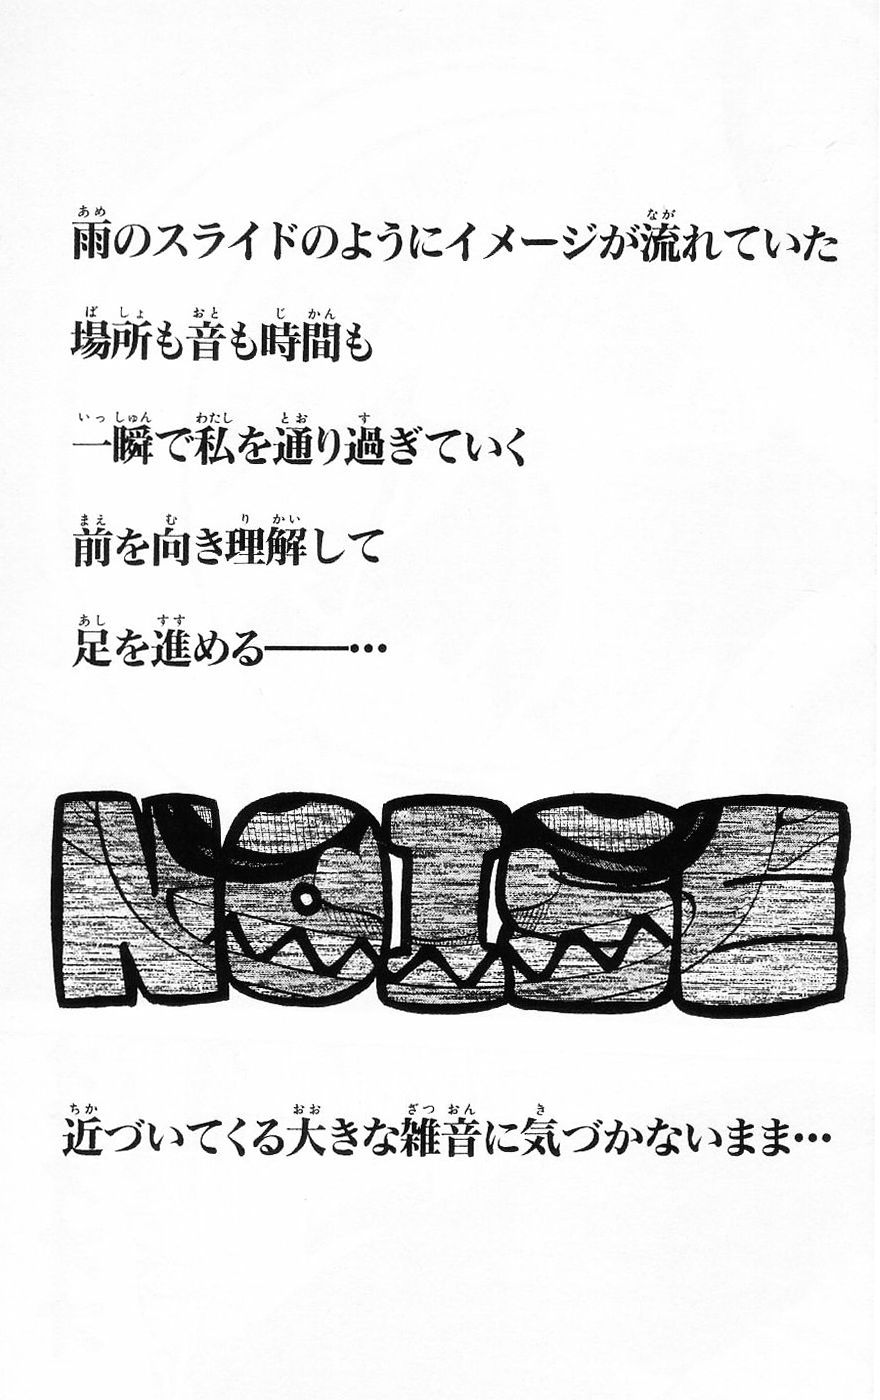 雨のスライドのようにイメージが流れていた
場所も音も時間も
一瞬で私を通り過ぎていく
前を向き理解して
足を進める――…
NOISE
近づいてくる大きな雑音に気づかないまま…